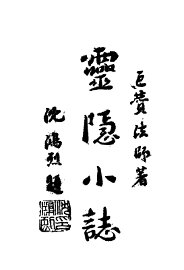 巨贊法師著
靈隱小誌
沈鴻烈題